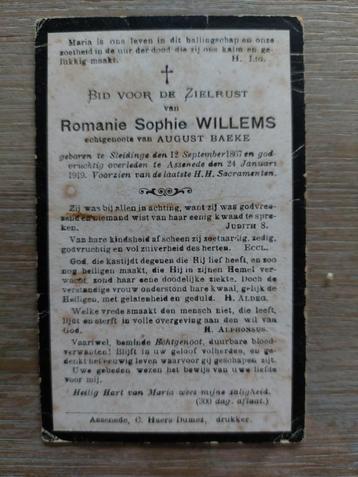 Maria is ons leven in dit ballingschap en onze
zoetheid in de uur der dood die zij ons kalm en ge-
lukkig maakt. H. Lig.
BID VOOR DE ZIELRUST
van
Romanie Sophie WILLEMS
echtgenoote van AUGUST BAEKE
geboren te Sleidinge den 12 September 1867 en god-
vruchtig overleden te Assenede den 24 Januari
1919. Voorzien van de laatste H.H. Sacramenten.
Zij was bij allen in achting, want zij was godvree-
zend en niemand wist van haar eenig kwaad te spre-
ken. JUDITH 8.
Van hare kindsheid af scheen zij zoetaardig, zedig,
godvruchtig en vol zuiverheid des herten. ECCL.
God, die kastijdt degenen die Hij lief heeft, en zoo
nog heiligen maakt, die Hij in zijnen Hemel ver-
wacht, zond haar eene doodelijke ziekte. Doch de
verstandige vrouw onderstond hare kwaal, gelijk de
Heiligen, met gelatenheid en geduld. H. ALDEG.
Welke vrede smaakt den mensch niet, die leeft,
lijdt en sterft in volle overgeving aan den wil van
God. H. ALPHONSUS.
Vaarwel, beminde Echtgenoot, duurbare bloed-
verwanten! Blijft in uw geloof volherden, als ge
gedenkt het eeuwig leven waarvoor wij geschapen
zijn. Uwe gebeden wezen het pand van uwe liefde
voor mij.
Heilig Hart van Maria wees mijne zaligheid.
(300 dag. aflaat.)
Assenede, C. Haers-Dumez, drukker.